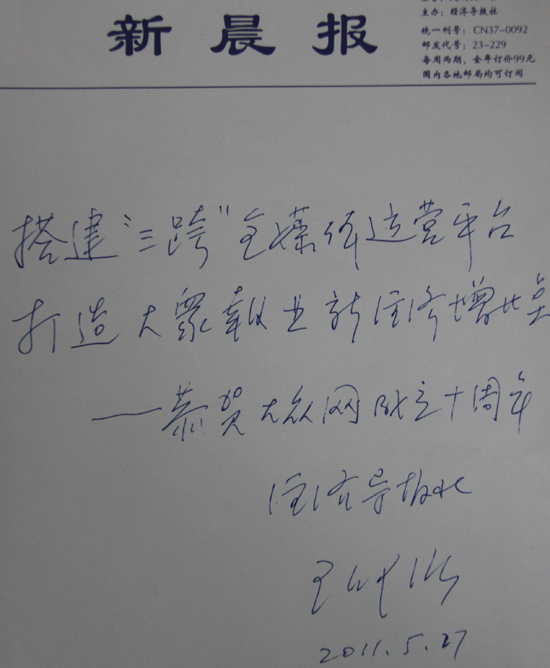 新晨报
主办：经济导报社
统一刊号：CN37-0092
邮发代号：23-229
每周两期，全年订价99元
国内各地邮局均可订阅
搭建"三跨"全媒体运营平台
打造大众報业新经济增长点
——恭贺大众网成立十周年
经济导报社
2011.5.27